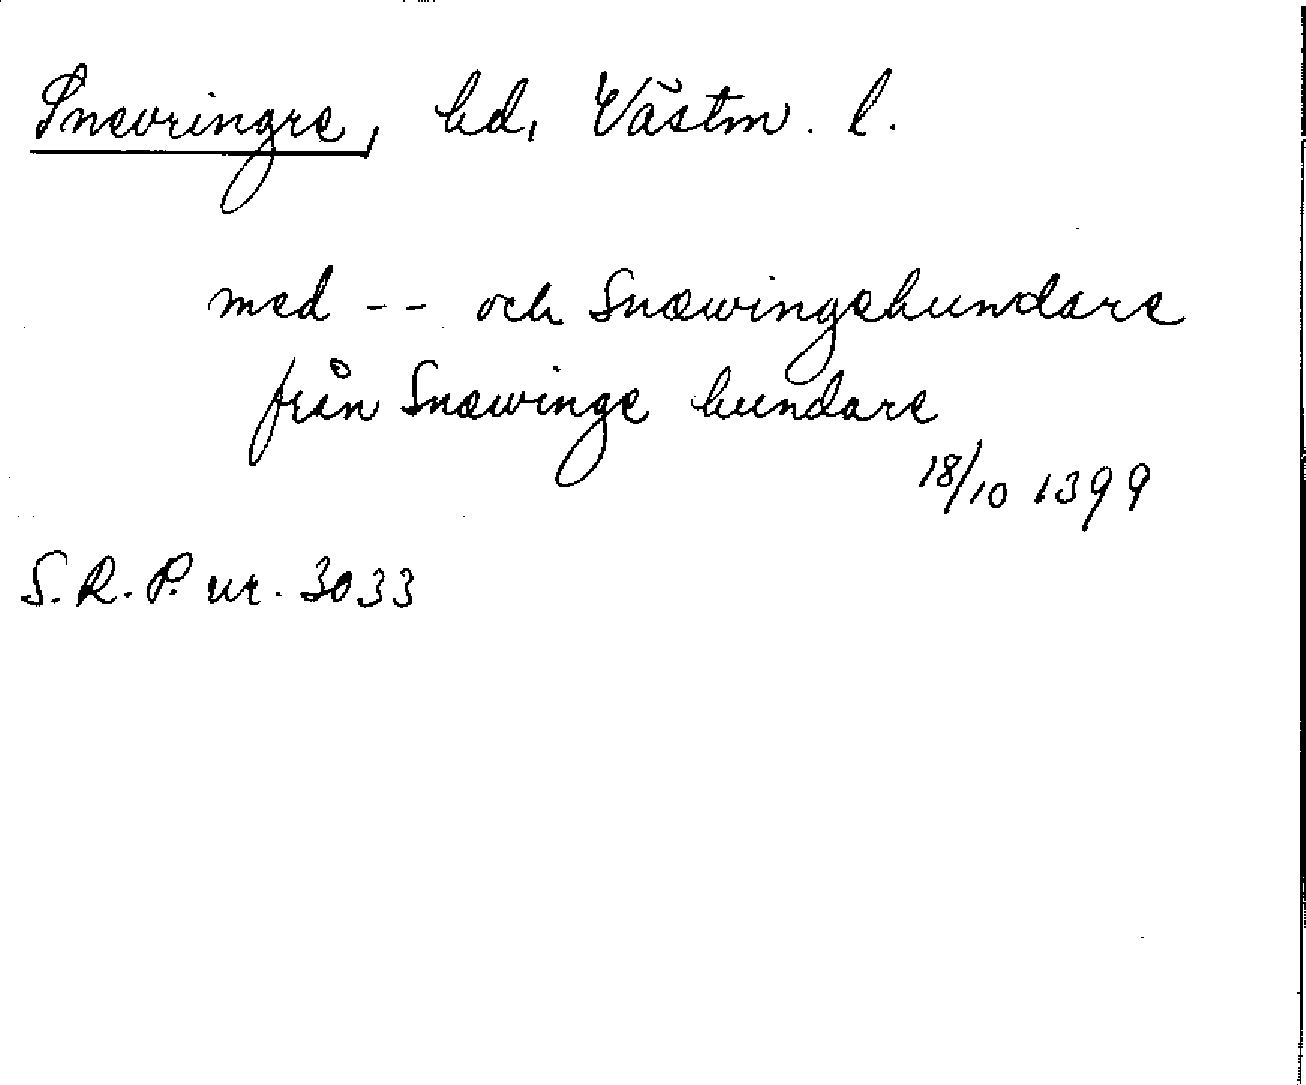 Snevringe, hd, Västm. l.
med -- och Snæwingehundare
från Snæwinge hundare
18/10 1399
S.R.P. nr. 3033